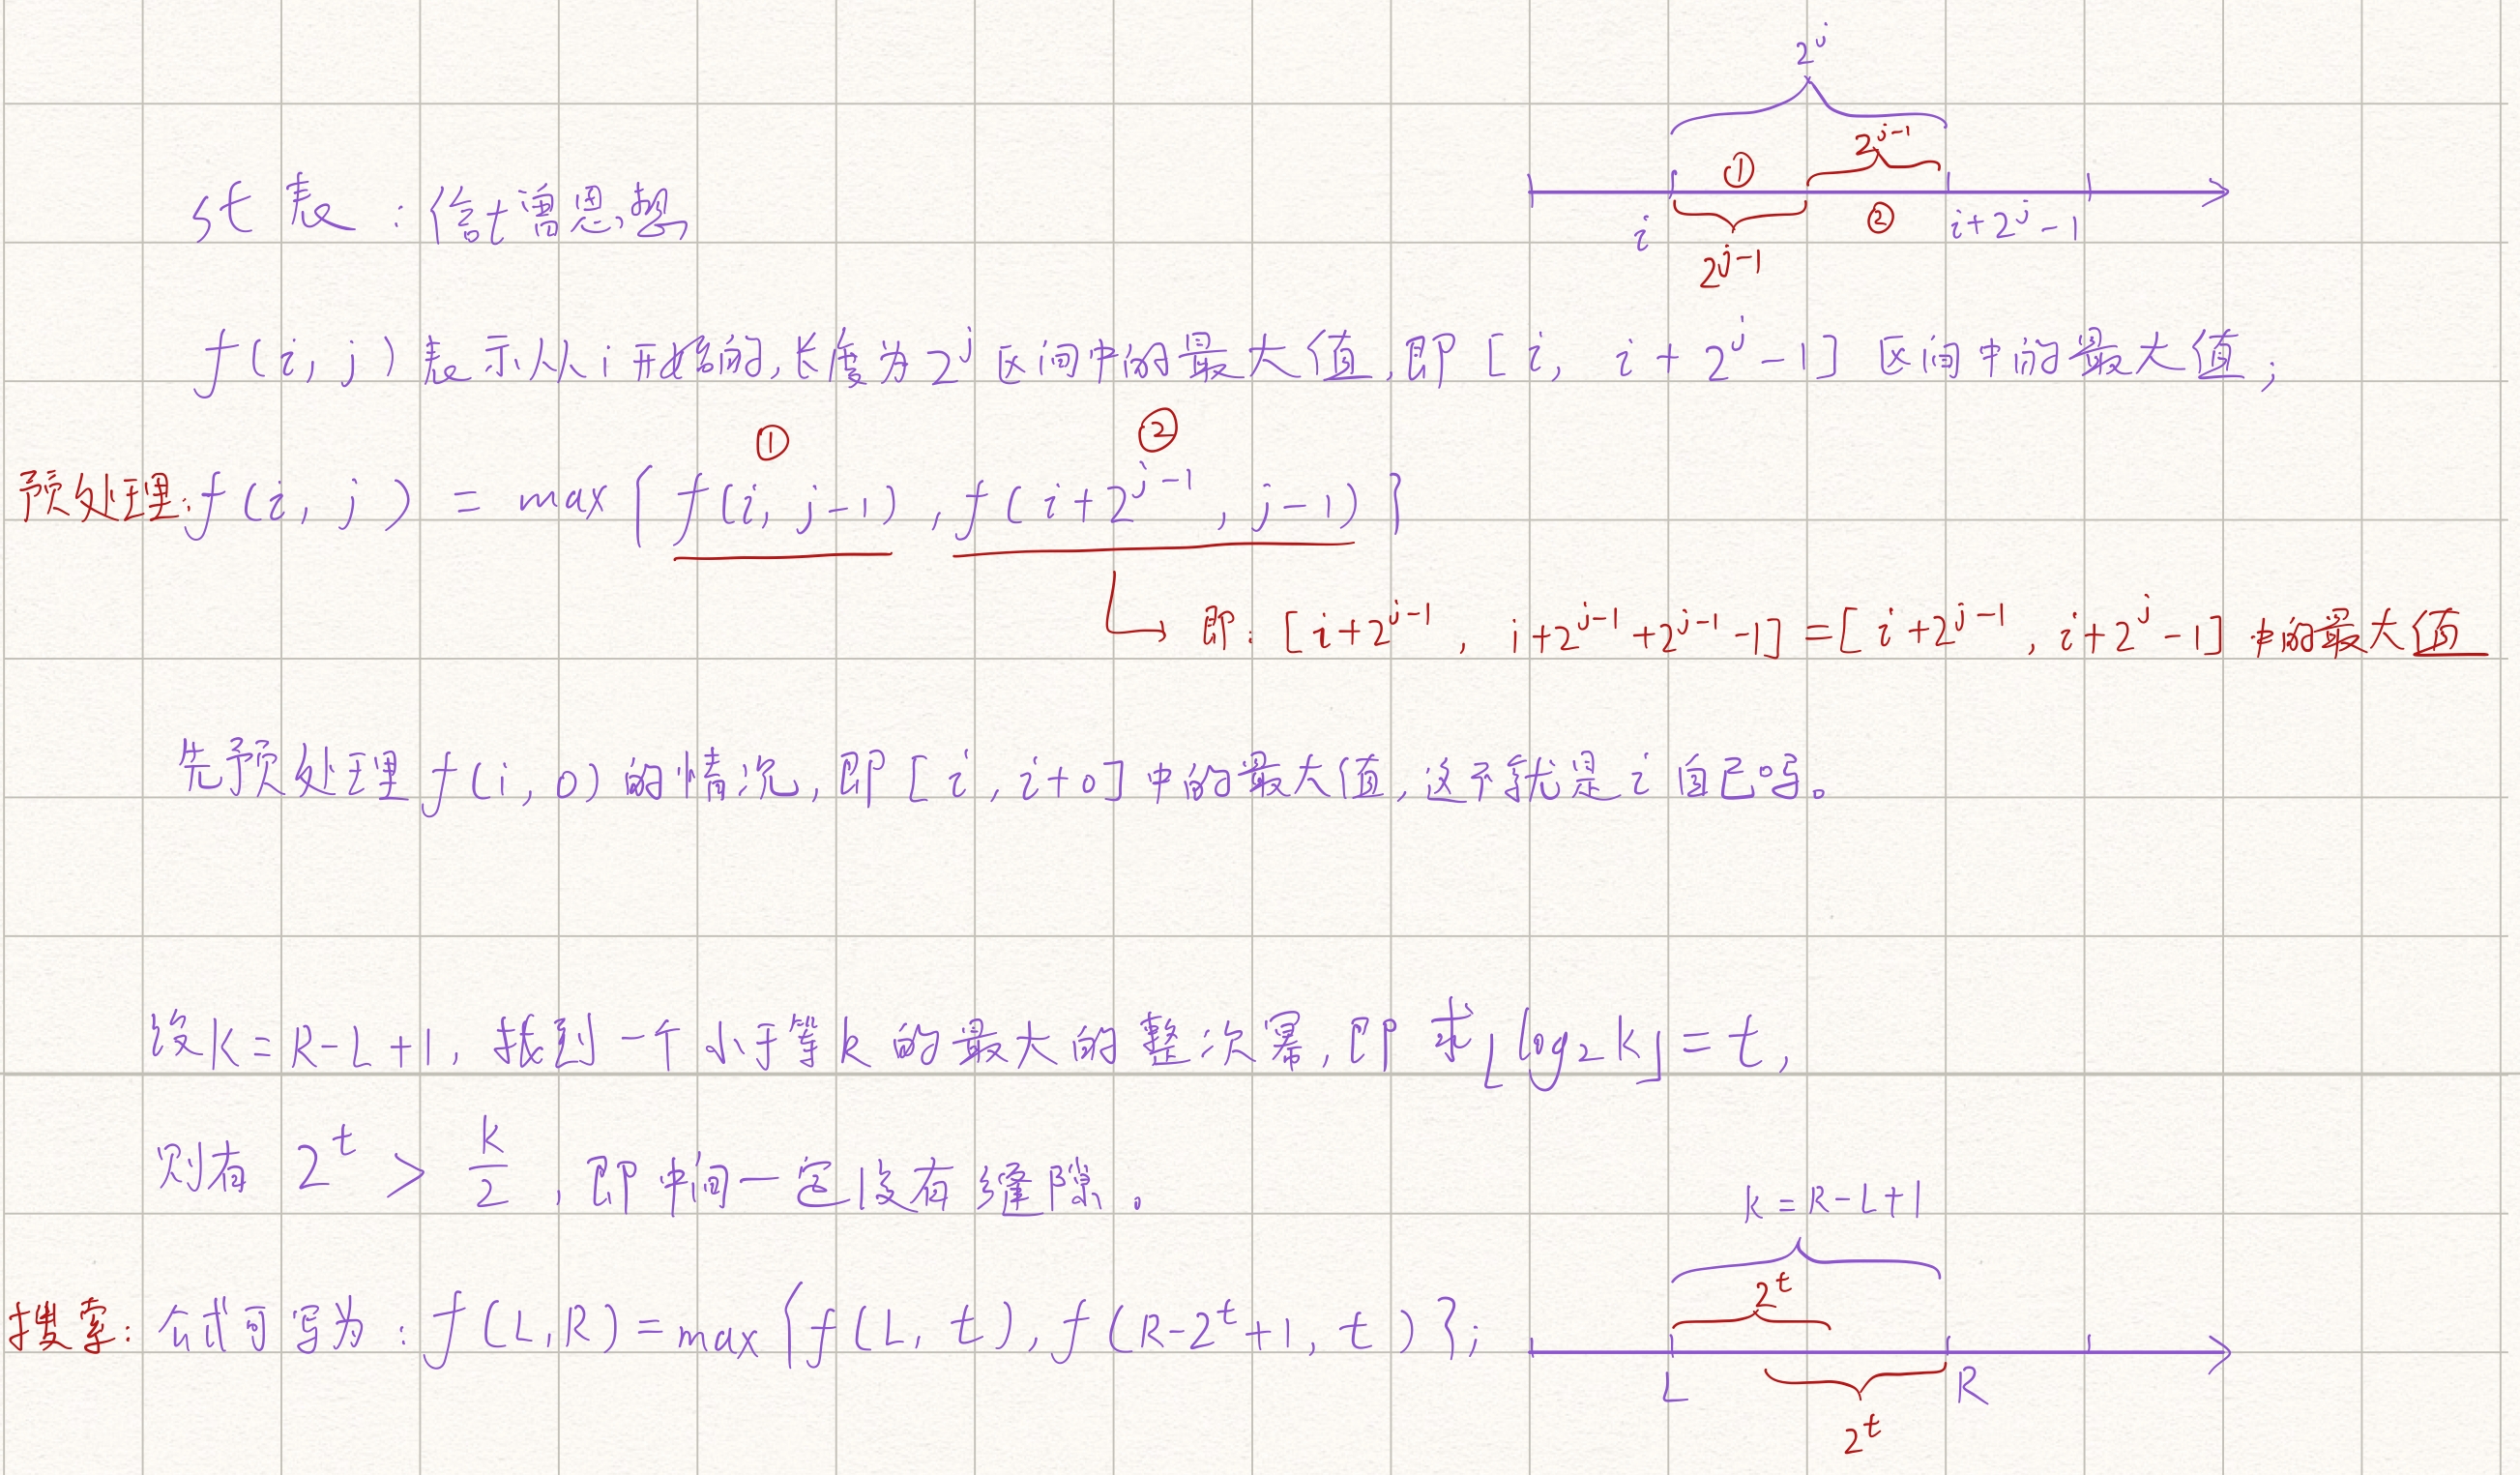 2^j
2^{j-1}
①
st表：倍增思想
i
②
i+2^j-1
2^{j-1}
f(i, j)表示从i开始的,长度为2^j区间中的最大值,即[i, i+2^j-1]区间中的最大值;
① ②
预处理:f(i, j) = max{f(i, j-1), f(i+2^{j-1}, j-1)}
即: [i+2^{j-1}, i+2^{j-1}+2^{j-1}-1]=[i+2^{j-1}, i+2^j-1]中的最大值
先预处理f(i, 0)的情况,即[i, i+0]中的最大值,这不就是i自己吗。
设k=R-L+1, 找到一个小于等k的最大的整次幂,即求⌊log₂k⌋=t,
则有 2^t > k/2 ,即中间一定没有缝隙。
k=R-L+1
2^t
搜索: 公式可写为: f(L,R)=max{f(L, t), f(R-2^t+1, t)};
L R
2^t